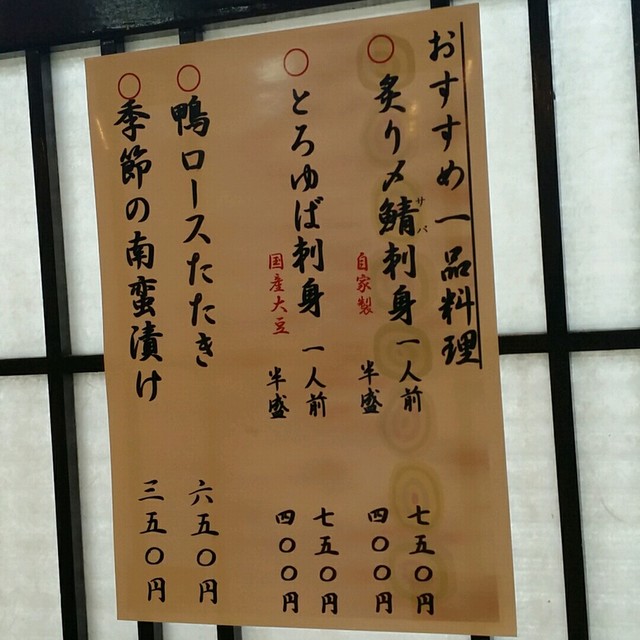 おすすめ一品料理
○炙り〆鯖刺身 一人前 七五〇円
サバ
自家製 半盛 四〇〇円
○とろゆば刺身 一人前 七五〇円
国産大豆 半盛 四〇〇円
○鴨ロースたたき 六五〇円
○季節の南蛮漬け 三五〇円